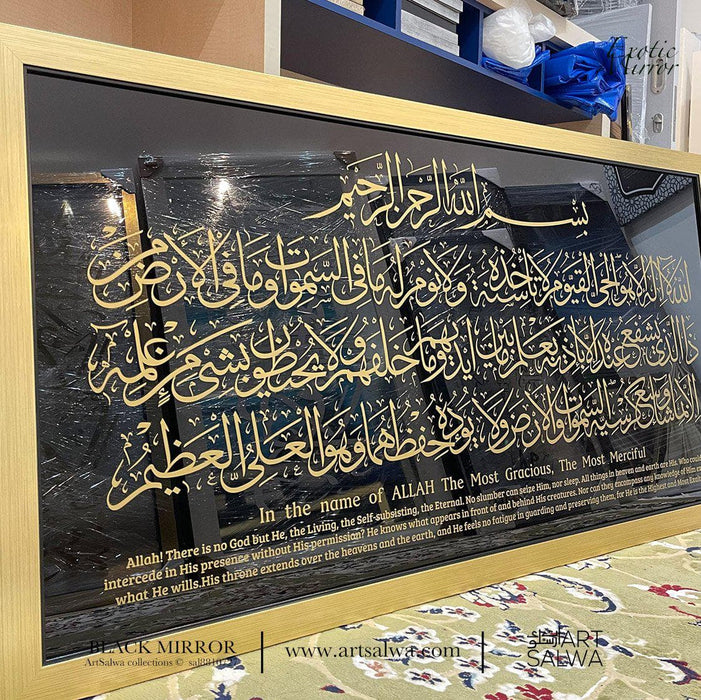 Exotic
Mirror
بسم الله الرحمن الرحيم
الله لا إله إلا هو الحي القيوم لا تأخذه سنة ولا نوم له ما في السموات وما في الأرض من
ذا الذي يشفع عنده إلا بإذنه يعلم ما بين أيديهم وما خلفهم ولا يحيطون بشيء من علمه
إلا بما شاء وسع كرسيه السموات والأرض ولا يؤده حفظهما وهو العلي العظيم
In the name of ALLAH The Most Gracious, The Most Merciful
Allah! There is no God but He, the Living, the Self-subsisting, the Eternal. No slumber can seize Him, nor sleep. All things in heaven and earth are His. Who could
intercede in His presence without His permission? He knows what appears in front of and behind His creatures. Nor can they encompass any knowledge of Him
what He wills.His throne extends over the heavens and the earth, and He feels no fatigue in guarding and preserving them, for He is the Highest and Most
BLACK MIRROR
ArtSalwa collections ©
www.artsalwa.com
ART
SALWA